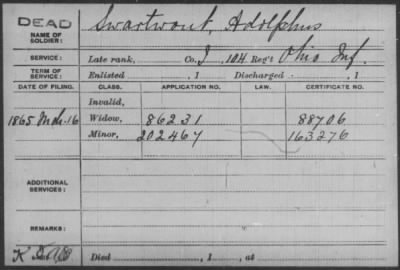 DEAD
NAME OF SOLDIER: Swartwout, Adolphus
SERVICE: Late rank, Co. I, 104 Reg't Ohio Inf.
TERM OF SERVICE: Enlisted , 1 Discharged , 1
DATE OF FILING. CLASS. APPLICATION NO. LAW. CERTIFICATE NO.
Invalid,
1865 Mch. 16 Widow, 86231 88706
Minor, 202467 163276
ADDITIONAL SERVICES:
REMARKS:
Died , 1 , at